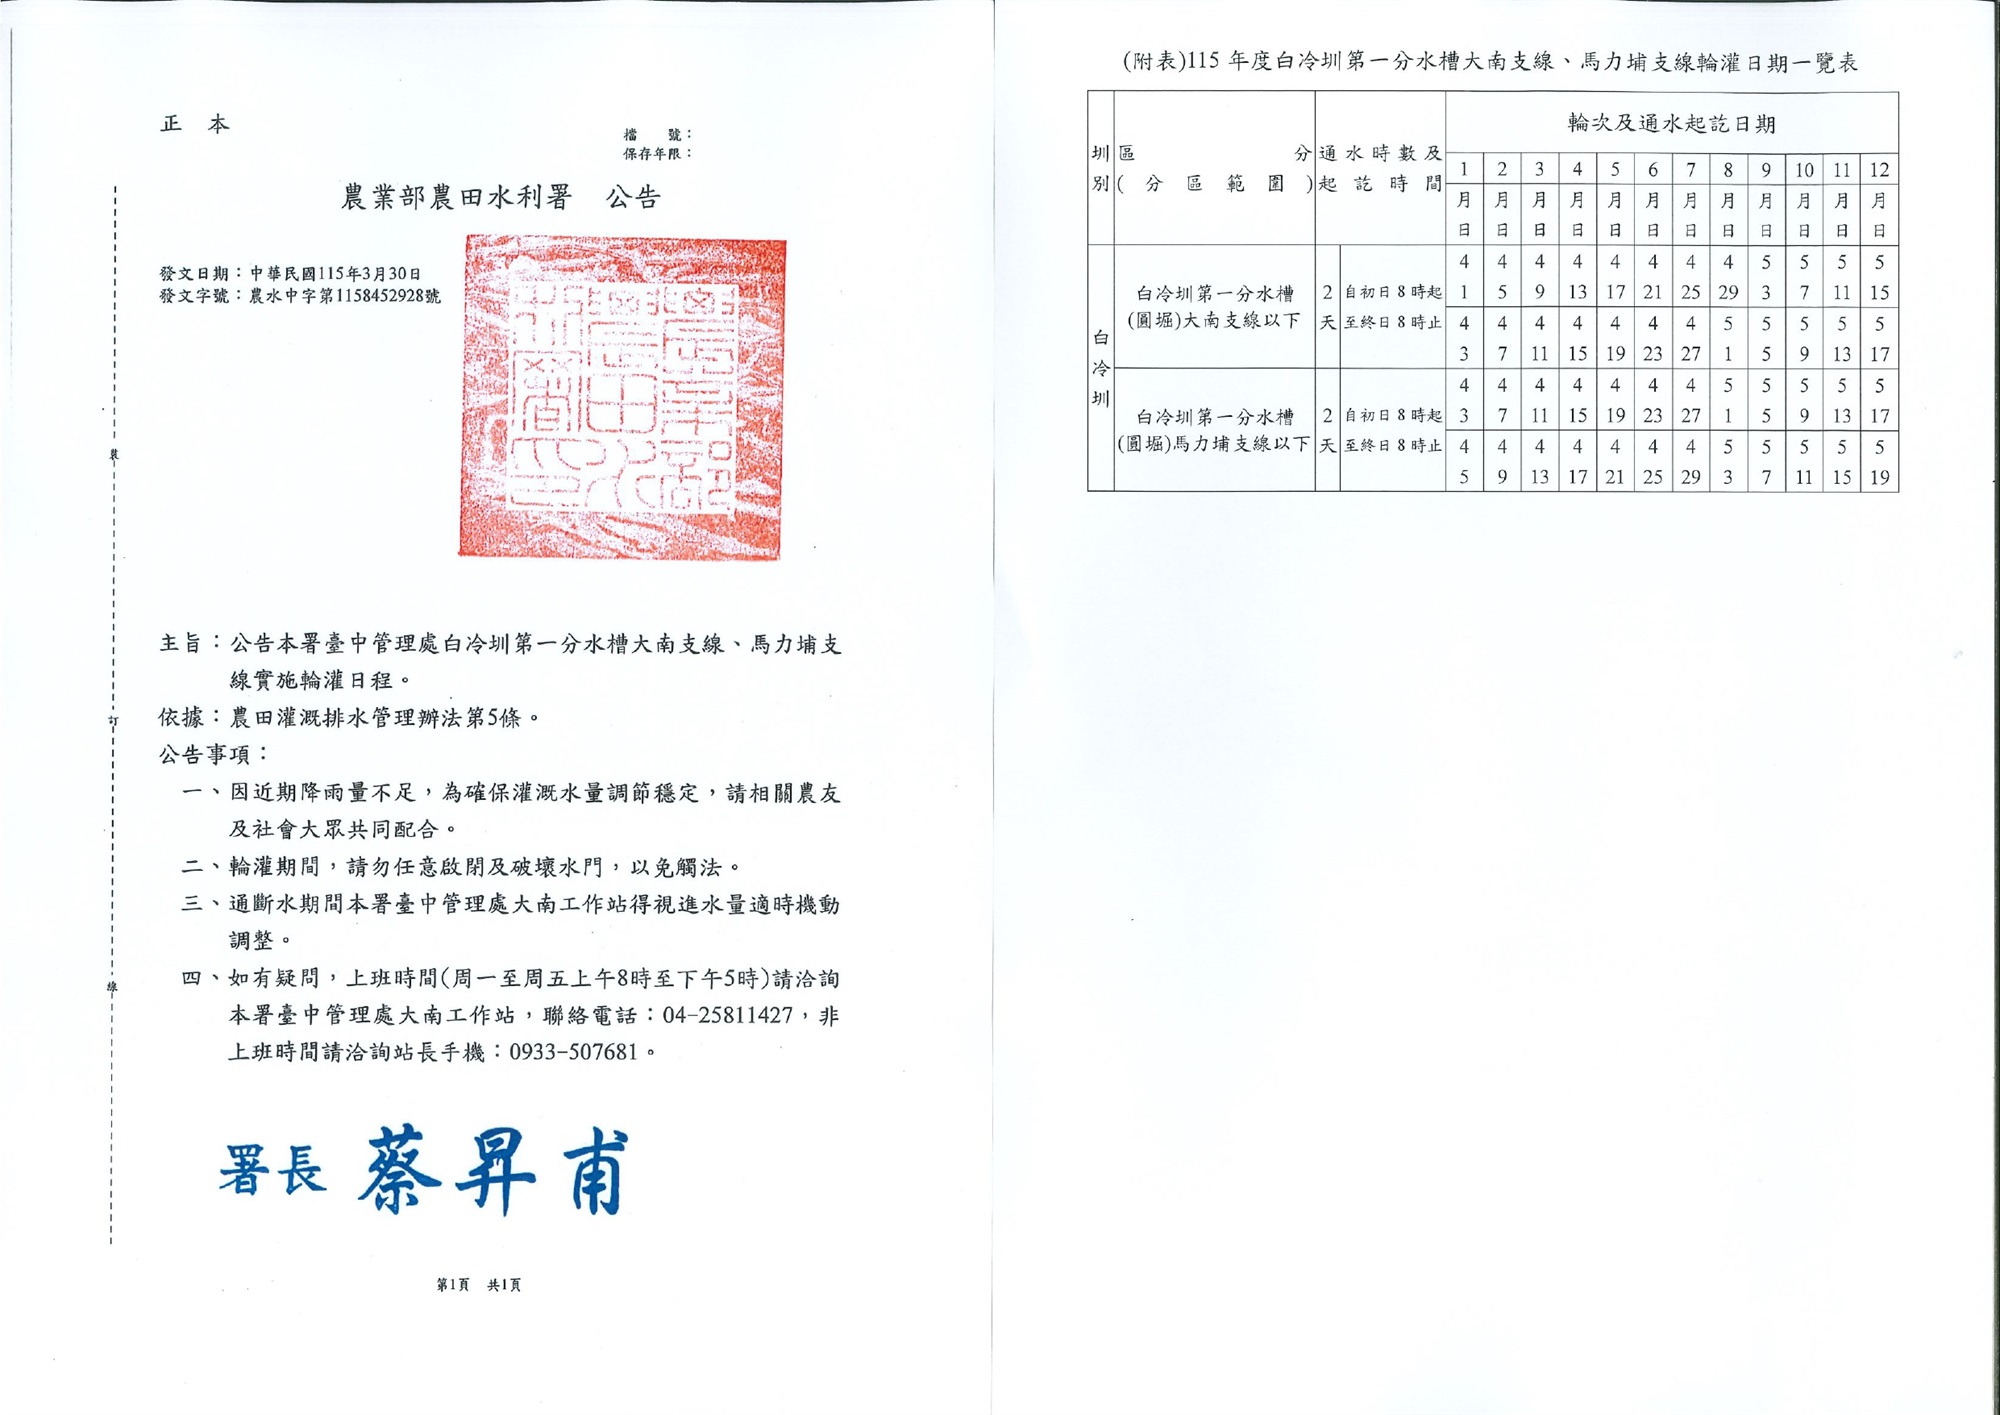 正　本
檔　　號：
保存年限：
農業部農田水利署　公告
發文日期：中華民國115年3月30日
發文字號：農水中字第1158452928號
主旨：公告本署臺中管理處白冷圳第一分水槽大南支線、馬力埔支
線實施輪灌日程。
依據：農田灌溉排水管理辦法第5條。
公告事項：
一、因近期降雨量不足，為確保灌溉水量調節穩定，請相關農友
及社會大眾共同配合。
二、輪灌期間，請勿任意啟閉及破壞水門，以免觸法。
三、通斷水期間本署臺中管理處大南工作站得視進水量適時機動
調整。
四、如有疑問，上班時間(周一至周五上午8時至下午5時)請洽詢
本署臺中管理處大南工作站，聯絡電話：04-25811427，非
上班時間請洽詢站長手機：0933-507681。
署長 蔡昇甫
第1頁　共1頁
裝
訂
線
(附表)115 年度白冷圳第一分水槽大南支線、馬力埔支線輪灌日期一覽表
圳別
區分
(分區範圍)
通水時數及
起訖時間
輪次及通水起訖日期
1 2 3 4 5 6 7 8 9 10 11 12
月 月 月 月 月 月 月 月 月 月 月 月
日 日 日 日 日 日 日 日 日 日 日 日
白冷圳
白冷圳第一分水槽
(圓堀)大南支線以下
2
天
自初日 8 時起
至終日 8 時止
4 4 4 4 4 4 4 4 5 5 5 5
1 5 9 13 17 21 25 29 3 7 11 15
4 4 4 4 4 4 4 5 5 5 5 5
3 7 11 15 19 23 27 1 5 9 13 17
白冷圳第一分水槽
(圓堀)馬力埔支線以下
2
天
自初日 8 時起
至終日 8 時止
4 4 4 4 4 4 4 5 5 5 5 5
3 7 11 15 19 23 27 1 5 9 13 17
4 4 4 4 4 4 4 5 5 5 5 5
5 9 13 17 21 25 29 3 7 11 15 19